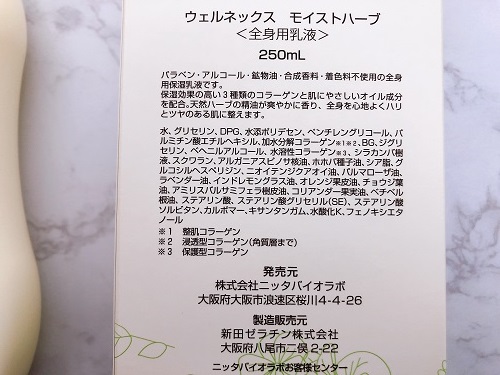 ウェルネックス モイストハーブ
<全身用乳液>
250mL
パラベン・アルコール・鉱物油・合成香料・着色料不使用の全身
用保湿乳液です。
保湿効果の高い3種類のコラーゲンと肌にやさしいオイル成分
を配合。天然ハーブの精油が爽やかに香り、全身を心地よくハリ
とツヤのある肌に整えます。
水、グリセリン、DPG、水添ポリデセン、ペンチレングリコール、パ
ルミチン酸エチルヘキシル、加水分解コラーゲン※1※2、BG、ジグリ
セリン、ベヘニルアルコール、水溶性コラーゲン※3、シラカンバ樹
液、スクワラン、アルガニアスピノサ核油、ホホバ種子油、シア脂、グ
ルコシルヘスペリジン、ニオイテンジクアオイ油、パルマローザ油、
ラベンダー油、インドレモングラス油、オレンジ果皮油、チョウジ葉
油、アミリスバルサミフェラ樹皮油、コリアンダー果実油、ベチベル
根油、ステアリン酸、ステアリン酸グリセリル(SE)、ステアリン酸
ソルビタン、カルボマー、キサンタンガム、水酸化K、フェノキシエタ
ノール
※1 整肌コラーゲン
※2 浸透型コラーゲン(角質層まで)
※3 保護型コラーゲン
発売元
株式会社ニッタバイオラボ
大阪府大阪市浪速区桜川4-4-26
製造販売元
新田ゼラチン株式会社
大阪府八尾市二俣2-22
ニッタバイオラボお客様センター